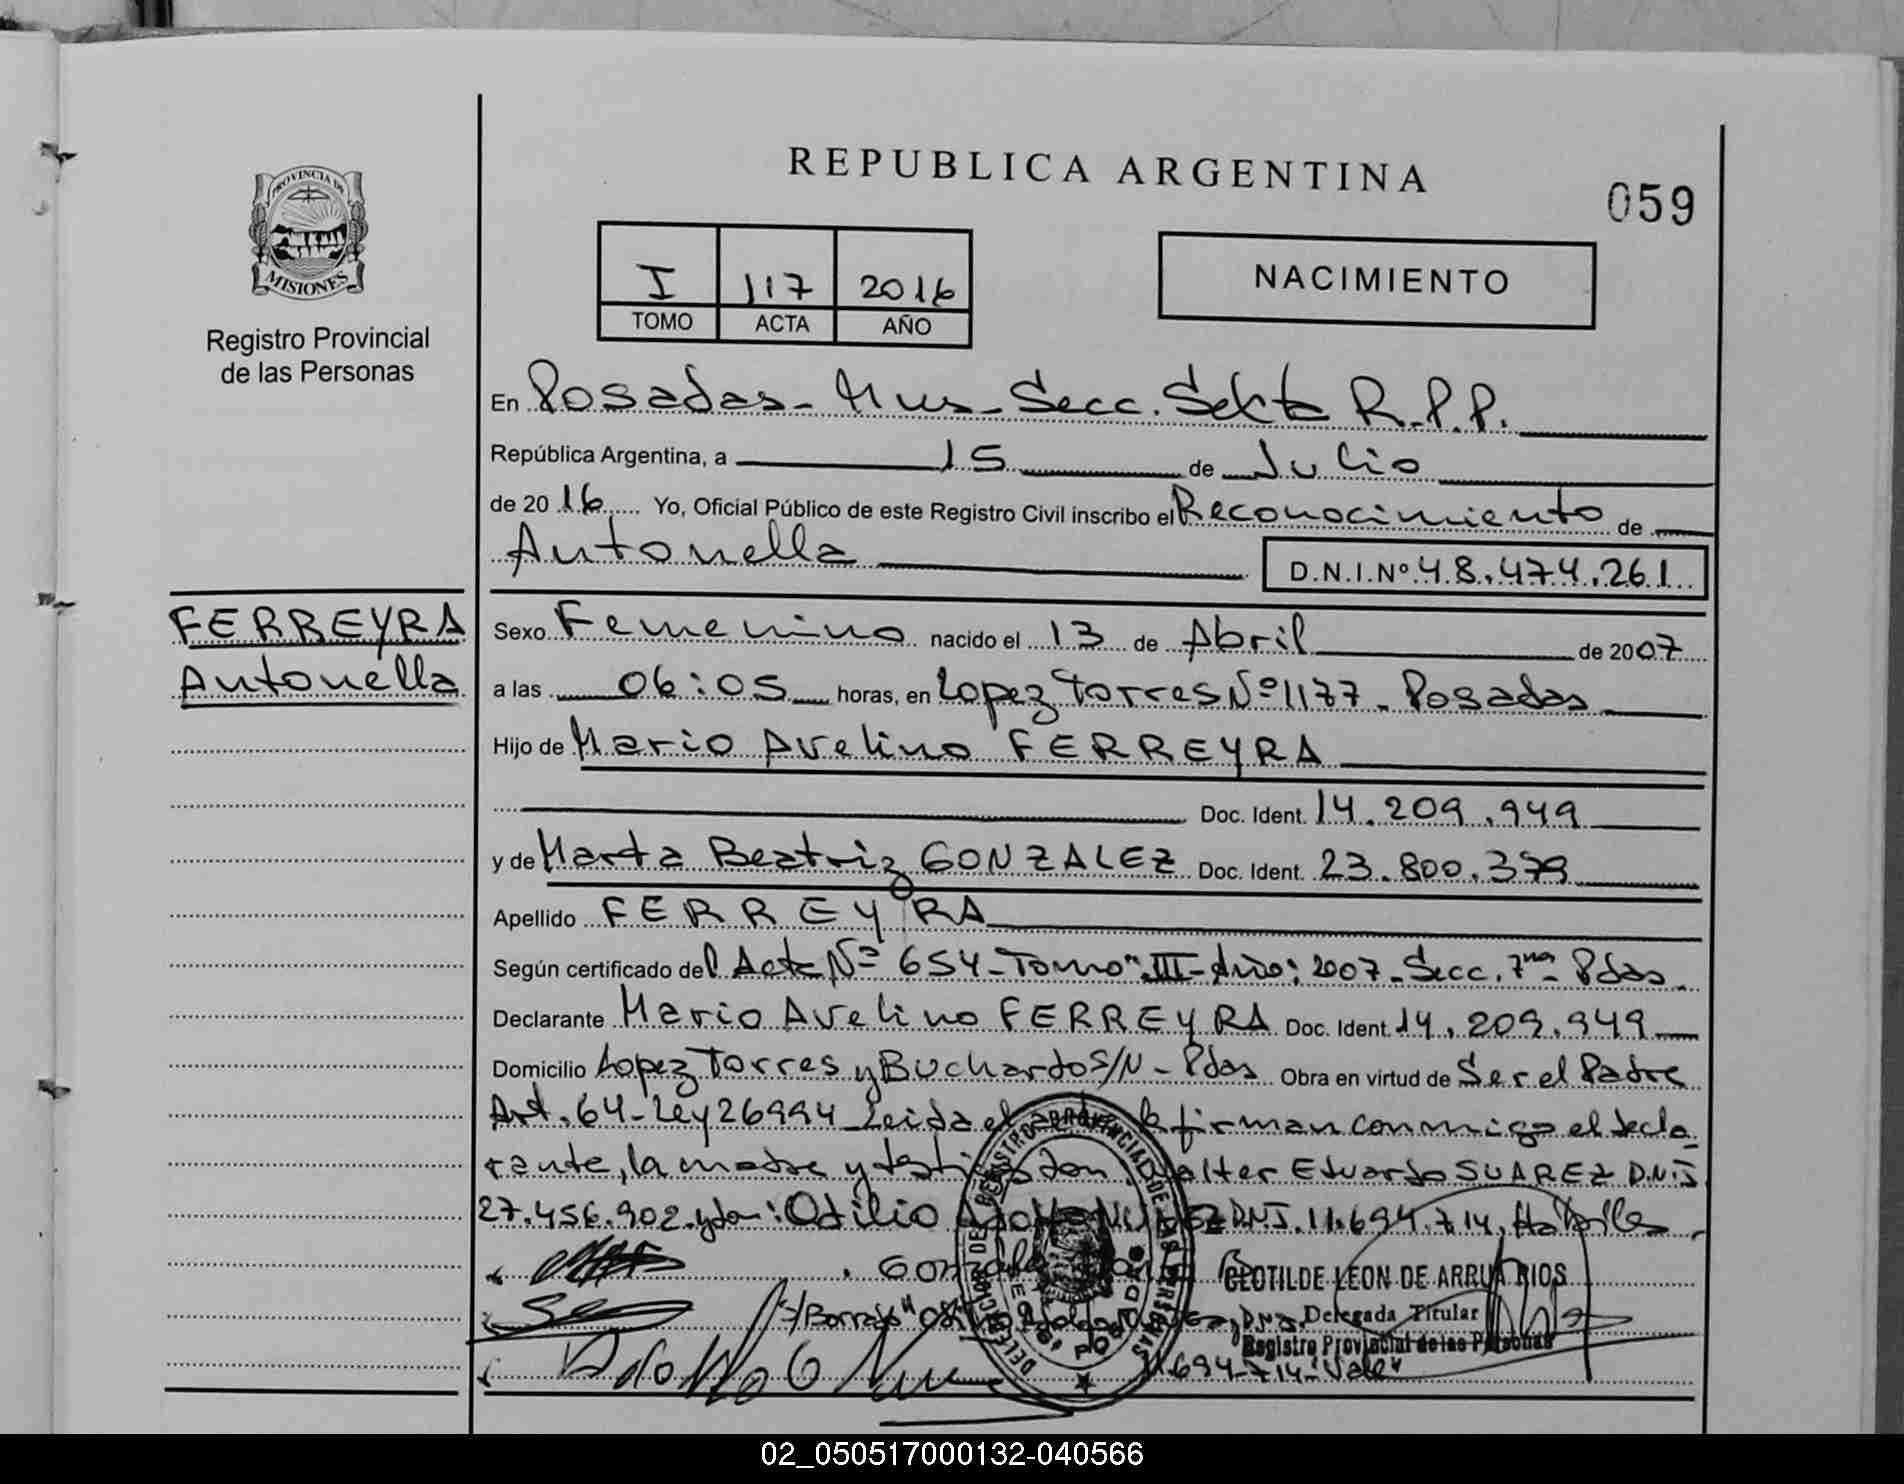 REPUBLICA ARGENTINA
059
PROVINCIA DE
MISIONES
Registro Provincial
de las Personas
I 117 2016
TOMO ACTA AÑO
NACIMIENTO
En Posadas - Mnes - Secc. Sexta R.P.P.
República Argentina, a 15 de Julio
de 2016 Yo, Oficial Público de este Registro Civil inscribo el Reconocimiento de
Antonella D.N.I. Nº 48.474.261
FERREYRA
Antonella
Sexo Femenino nacido el 13 de Abril de 2007
a las 06:05 horas, en Lopez Torres Nº 1177 - Posadas
Hijo de Mario Avelino FERREYRA
Doc. Ident. 14.209.949
y de Marta Beatriz GONZALEZ Doc. Ident. 23.800.379
Apellido FERREYRA
Según certificado del Acta Nº 654 - Tomo: III - Año: 2007 - Secc. 7ma - Pdas
Declarante Mario Avelino FERREYRA Doc. Ident. 14.209.949
Domicilio Lopez Torres y Buchardo S/N - Pdas Obra en virtud de Ser el Padre
Art. 64 - Ley 26994 Leida el la firman conmigo el decla
rante, la madre y testigos don Walter Eduardo SUAREZ D.N.I.
27.456.902 y don: Odilio D.N.I. 11.694.714, Habiles
CLOTILDE LEON DE ARRUA RIOS
S/Borrado D.N.I. Delegada Titular
Registro Provincial de las Personas
11.694.714 "Vale"
02_050517000132-040566